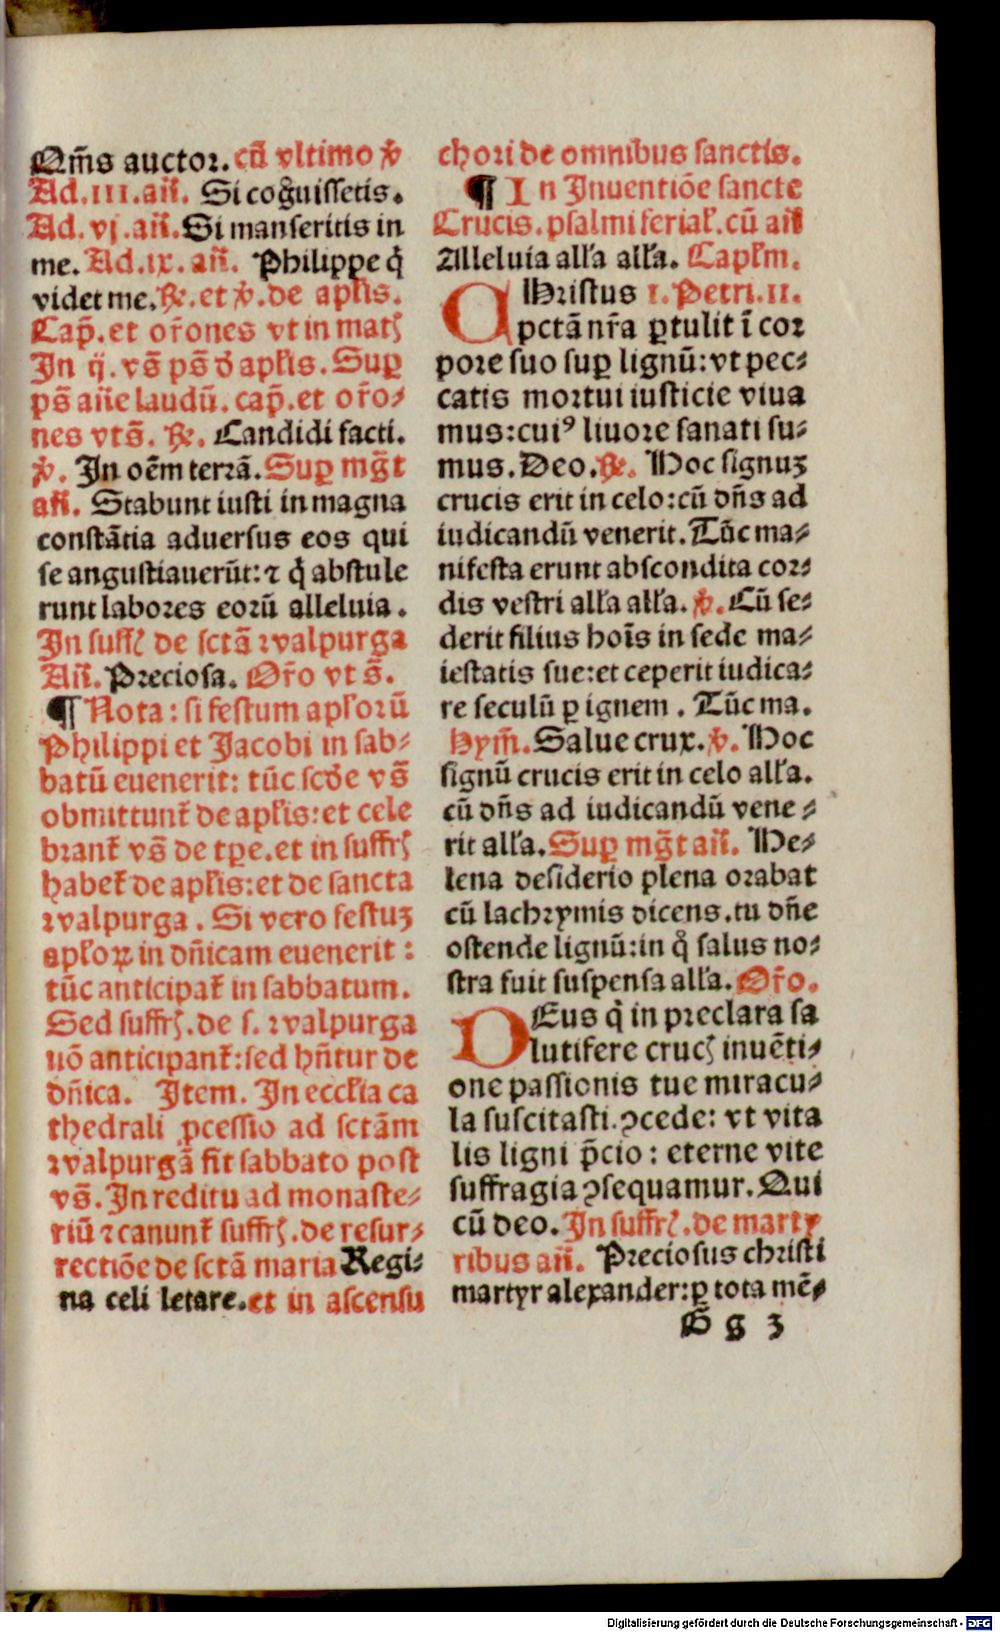 Qm̃s auctor. cũ vltimo ꝟ
Ad. III. añ. Si cog̃uissetis.
Ad. vj. añ. Si manseritis in
me. Ad. ix. añ. Philippe q̇
videt me. ℞. et ꝟ. de apl̃is.
Cap̃. et or̃ones vt in matꝭ
In ij. vs̃ ps̃ ꝺ̃ apl̃is. Suꝑ
ps̃ añe laudũ. cap̃. et or̃o⸗
nes vts̃. ℞. Candidi facti.
ꝟ. In oẽm terrã. Suꝑ mg̃t
añ. Stabunt iusti in magna
constãtia aduersus eos qui
se angustiauerũt: ⁊ q̇ abstule
runt labores eorũ alleluia.
In suffꝭ de sctã walpurga
Añ. Preciosa. Or̃o vt s̃.
¶ Nota: si festum apl'orũ
Philippi et Jacobi in sab⸗
batũ euenerit: tũc scd̃e vs̃
obmittunt̃ de apl̃is: et cele
brant̃ vs̃ de tꝑe. et in suffrꝭ
habet̃ de apl̃is: et de sancta
walpurga. Si vero festuꝫ
apl'oꝝ in dñicam euenerit:
tũc anticipat̃ in sabbatum.
Sed suffrꝭ. de s. walpurga
nõ anticipant̃: sed hñtur de
dñica. Item. In eccl̃ia ca
thedrali ꝓcessio ad sctãm
walpurgã fit sabbato post
vs̃. In reditu ad monaste⸗
riũ ⁊ canunt̃ suffrꝭ. de resur⸗
rectiõe de sctã maria Regi⸗
na celi letare. et in ascensu
chori de omnibus sanctis.
¶ In Inuentiõe sancte
Crucis. psalmi ferial̃. cũ añ
Alleluia all'a all'a. Capl̃m.
CHristus I. Petri. II.
pctã nr̃a ꝑtulit ĩ cor
pore suo suꝑ lignũ: vt pec⸗
catis mortui iusticie viua
mus: cuiꝰ liuore sanati su⸗
mus. Deo. ℞. Hoc signuꝫ
crucis erit in celo: cũ dñs ad
iudicandũ venerit. Tũc ma⸗
nifesta erunt abscondita cor⸗
dis vestri all'a all'a. ꝟ. Cũ se⸗
derit filius hoĩs in sede ma⸗
iestatis sue: et ceperit iudica⸗
re seculũ ꝑ ignem. Tũc ma.
Hym̃. Salue crux. ꝟ. Hoc
signũ crucis erit in celo all'a.
cũ dñs ad iudicandũ vene⸗
rit all'a. Suꝑ mg̃t añ. He⸗
lena desiderio plena orabat
cũ lachrymis dicens. tu dñe
ostende lignũ: in q̊ salus no⸗
stra fuit suspensa all'a. Or̃o.
DEus q̇ in preclara sa
lutifere crucꝭ inuẽti⸗
one passionis tue miracu⸗
la suscitasti. ꝯcede: vt vita
lis ligni p̃cio: eterne vite
suffragia ꝯsequamur. Qui
cũ deo. In suffrꝭ. de marty
ribus añ. Preciosus christi
martyr alexander: ꝑ tota mẽ⸗
G g 3
Digitalisierung gefördert durch die Deutsche Forschungsgemeinschaft - DFG